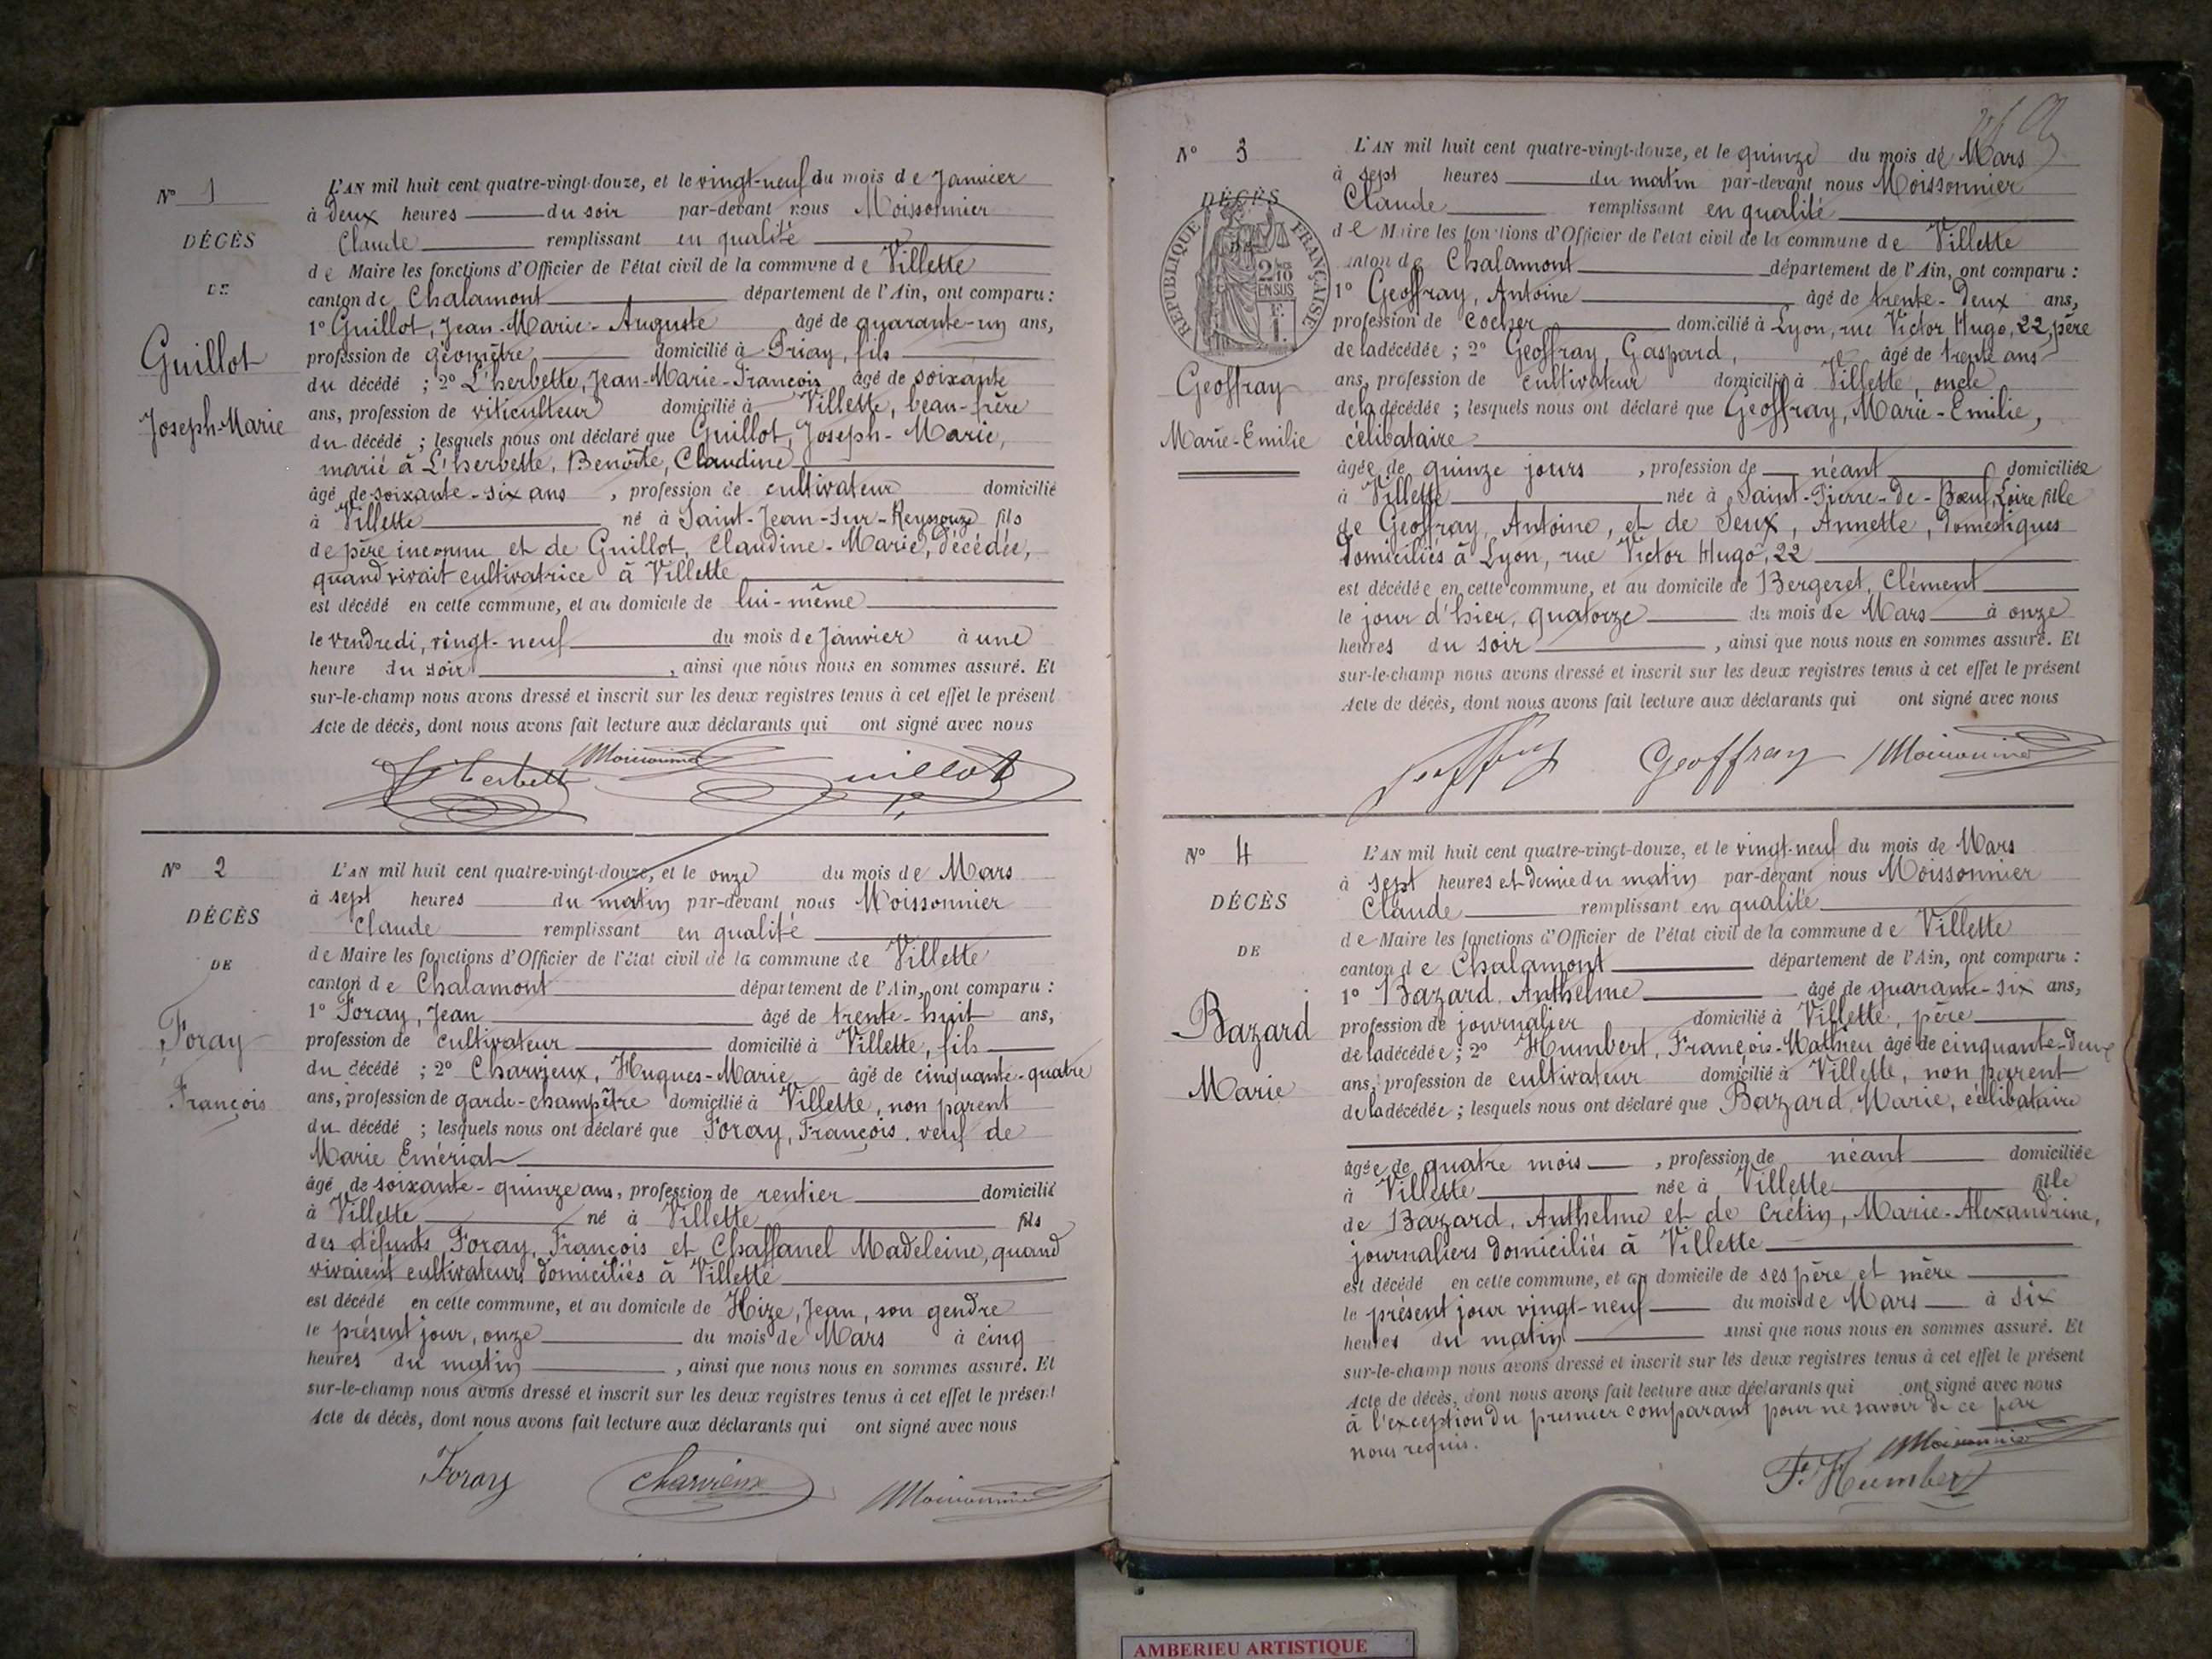 Nº 1
DÉCÈS
DE
Guillot
Joseph-Marie
L'AN mil huit cent quatre-vingt-douze, et le vingt-neuf du mois de Janvier
à deux heures du soir par-devant nous Moissonnier
Claude remplissant en qualité
de Maire les fonctions d'Officier de l'état civil de la commune de Villette
canton de Chalamont département de l'Ain, ont comparu :
1º Guillot, Jean-Marie-Auguste âgé de quarante-un ans,
profession de géomètre domicilié à Priay, fils
du décédé ; 2º L'herbette, Jean-Marie-François âgé de soixante
ans, profession de viticulteur domicilié à Villette, beau-frère
du décédé ; lesquels nous ont déclaré que Guillot, Joseph-Marie,
marié à L'herbette, Benoîte, Claudine
âgé de soixante-six ans , profession de cultivateur domicilié
à Villette né à Saint-Jean-sur-Reyssouze fils
de père inconnu et de Guillot, Claudine-Marie, décédée,
quand vivait cultivatrice à Villette
est décédé en cette commune, et au domicile de lui-même
le vendredi, vingt-neuf du mois de Janvier à une
heure du soir , ainsi que nous nous en sommes assuré. Et
sur-le-champ nous avons dressé et inscrit sur les deux registres tenus à cet effet le présent
Acte de décès, dont nous avons fait lecture aux déclarants qui ont signé avec nous
L'herbette Moissonnier Guillot
Nº 2
DÉCÈS
DE
Foray
François
L'AN mil huit cent quatre-vingt-douze, et le onze du mois de Mars
à sept heures du matin par-devant nous Moissonnier
Claude remplissant en qualité
de Maire les fonctions d'Officier de l'état civil de la commune de Villette
canton de Chalamont département de l'Ain, ont comparu :
1º Foray, Jean âgé de trente-huit ans,
profession de cultivateur domicilié à Villette, fils
du décédé ; 2º Charvieux, Hugues-Marie âgé de cinquante-quatre
ans, profession de garde-champêtre domicilié à Villette, non parent
du décédé ; lesquels nous ont déclaré que Foray, François, veuf de
Marie Emériat
âgé de soixante-quinze ans, profession de rentier domicilié
à Villette né à Villette fils
des défunts Foray, François et Chaffanel Madeleine, quand
vivaient cultivateurs domiciliés à Villette
est décédé en cette commune, et au domicile de Hize, Jean, son gendre
le présent jour, onze du mois de Mars à cinq
heures du matin , ainsi que nous nous en sommes assuré. Et
sur-le-champ nous avons dressé et inscrit sur les deux registres tenus à cet effet le présent
Acte de décès, dont nous avons fait lecture aux déclarants qui ont signé avec nous
Foray Charvieux Moissonnier
Nº 3
DÉCÈS
RÉPUBLIQUE FRANÇAISE
2/10
EN SUS
Geoffray
Marie-Emilie
L'AN mil huit cent quatre-vingt-douze, et le quinze du mois de Mars
à sept heures du matin par-devant nous Moissonnier
Claude remplissant en qualité
de Maire les fonctions d'Officier de l'état civil de la commune de Villette
canton de Chalamont département de l'Ain, ont comparu :
1º Geoffray, Antoine âgé de trente-deux ans,
profession de cocher domicilié à Lyon, rue Victor Hugo, 22, père
de la décédée ; 2º Geoffray, Gaspard, âgé de trente ans
ans, profession de cultivateur domicilié à Villette, oncle
de la décédée ; lesquels nous ont déclaré que Geoffray, Marie-Emilie,
célibataire
âgée de quinze jours , profession de néant domiciliée
à Villette née à Saint-Pierre-de-Bœuf, Loire fille
de Geoffray, Antoine, et de Seux, Annette, domestiques
domiciliés à Lyon, rue Victor Hugo, 22
est décédée en cette commune, et au domicile de Bergeret, Clément
le jour d'hier, quatorze du mois de Mars à onze
heures du soir , ainsi que nous nous en sommes assuré. Et
sur-le-champ nous avons dressé et inscrit sur les deux registres tenus à cet effet le présent
Acte de décès, dont nous avons fait lecture aux déclarants qui ont signé avec nous
Geoffray Geoffray Moissonnier
Nº 4
DÉCÈS
DE
Bazard
Marie
L'AN mil huit cent quatre-vingt-douze, et le vingt-neuf du mois de Mars
à sept heures et demie du matin par-devant nous Moissonnier
Claude remplissant en qualité
de Maire les fonctions d'Officier de l'état civil de la commune de Villette
canton de Chalamont département de l'Ain, ont comparu :
1º Bazard, Anthelme âgé de quarante-six ans,
profession de journalier domicilié à Villette, père
de la décédée ; 2º Humbert, François-Mathieu âgé de cinquante-deux
ans, profession de cultivateur domicilié à Villette, non parent
de la décédée ; lesquels nous ont déclaré que Bazard, Marie, célibataire
âgée de quatre mois , profession de néant domiciliée
à Villette née à Villette fille
de Bazard, Anthelme et de Crétin, Marie-Alexandrine,
journaliers domiciliés à Villette
est décédé en cette commune, et au domicile de ses père et mère
le présent jour vingt-neuf du mois de Mars à six
heures du matin ainsi que nous nous en sommes assuré. Et
sur-le-champ nous avons dressé et inscrit sur les deux registres tenus à cet effet le présent
Acte de décès, dont nous avons fait lecture aux déclarants qui ont signé avec nous
à l'exception du premier comparant pour ne savoir de ce par
nous requis.
Moissonnier
F. Humbert
AMBERIEU ARTISTIQUE